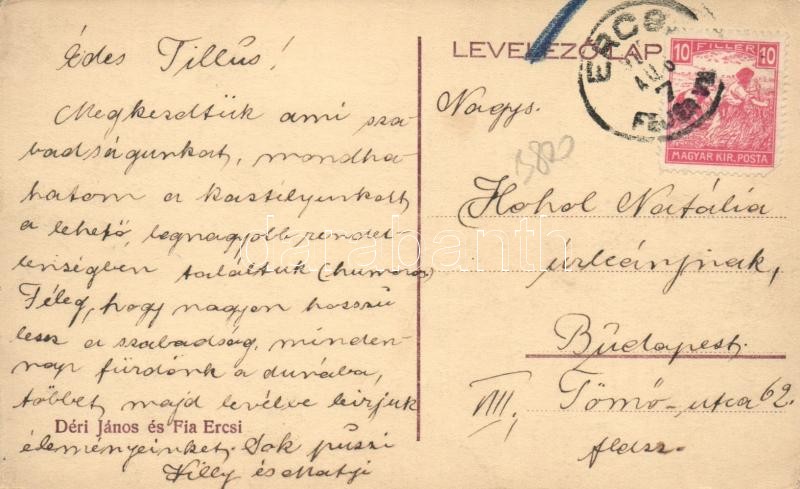 Édes Tillus!
Megkezdtük ami sza-
badságunkat, mondha-
hatom a kastélyunkat
a lehető legnagyobb rendet-
lenségben találtuk (humoros)
Féleg, hogy nagyon hosszú
lesz a szabadság, minden-
nap fürdünk a dunába,
többet majd levélve leirjuk
Déri János és Fia Ercsi
élményeinket. Sok puszi
Villy és Matyi
LEVELEZŐLAP
ERCSI
FEJÉR VM
10 FILLÉR 10
MAGYAR KIR. POSTA
Nagys.
5800
Hohol Natália
urleánynak,
Budapest.
VIII, Tömő-utca 62.
fldsz.
darabanth